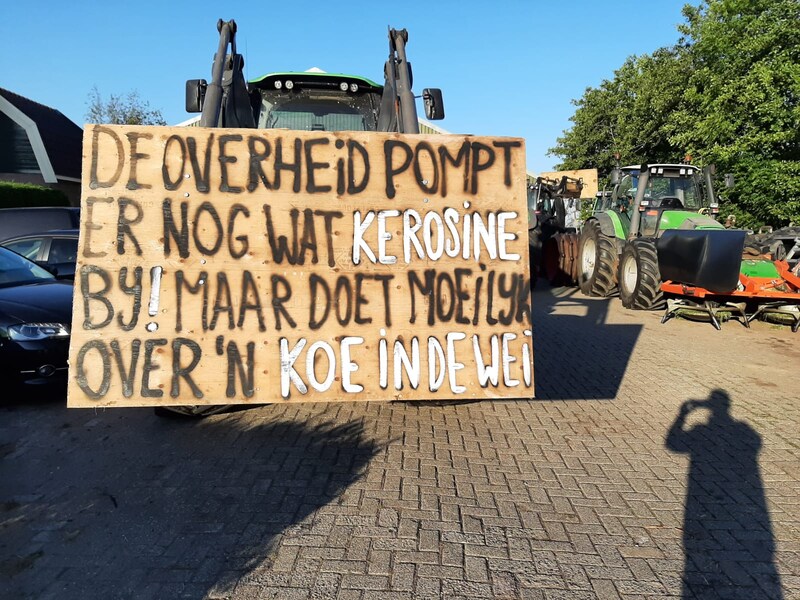 DE OVERHEiD POMPT
ER NOG WAT KEROSiNE
BY! MAAR DOET MOEiLYK
OVER 'N KOE iN DE WEi